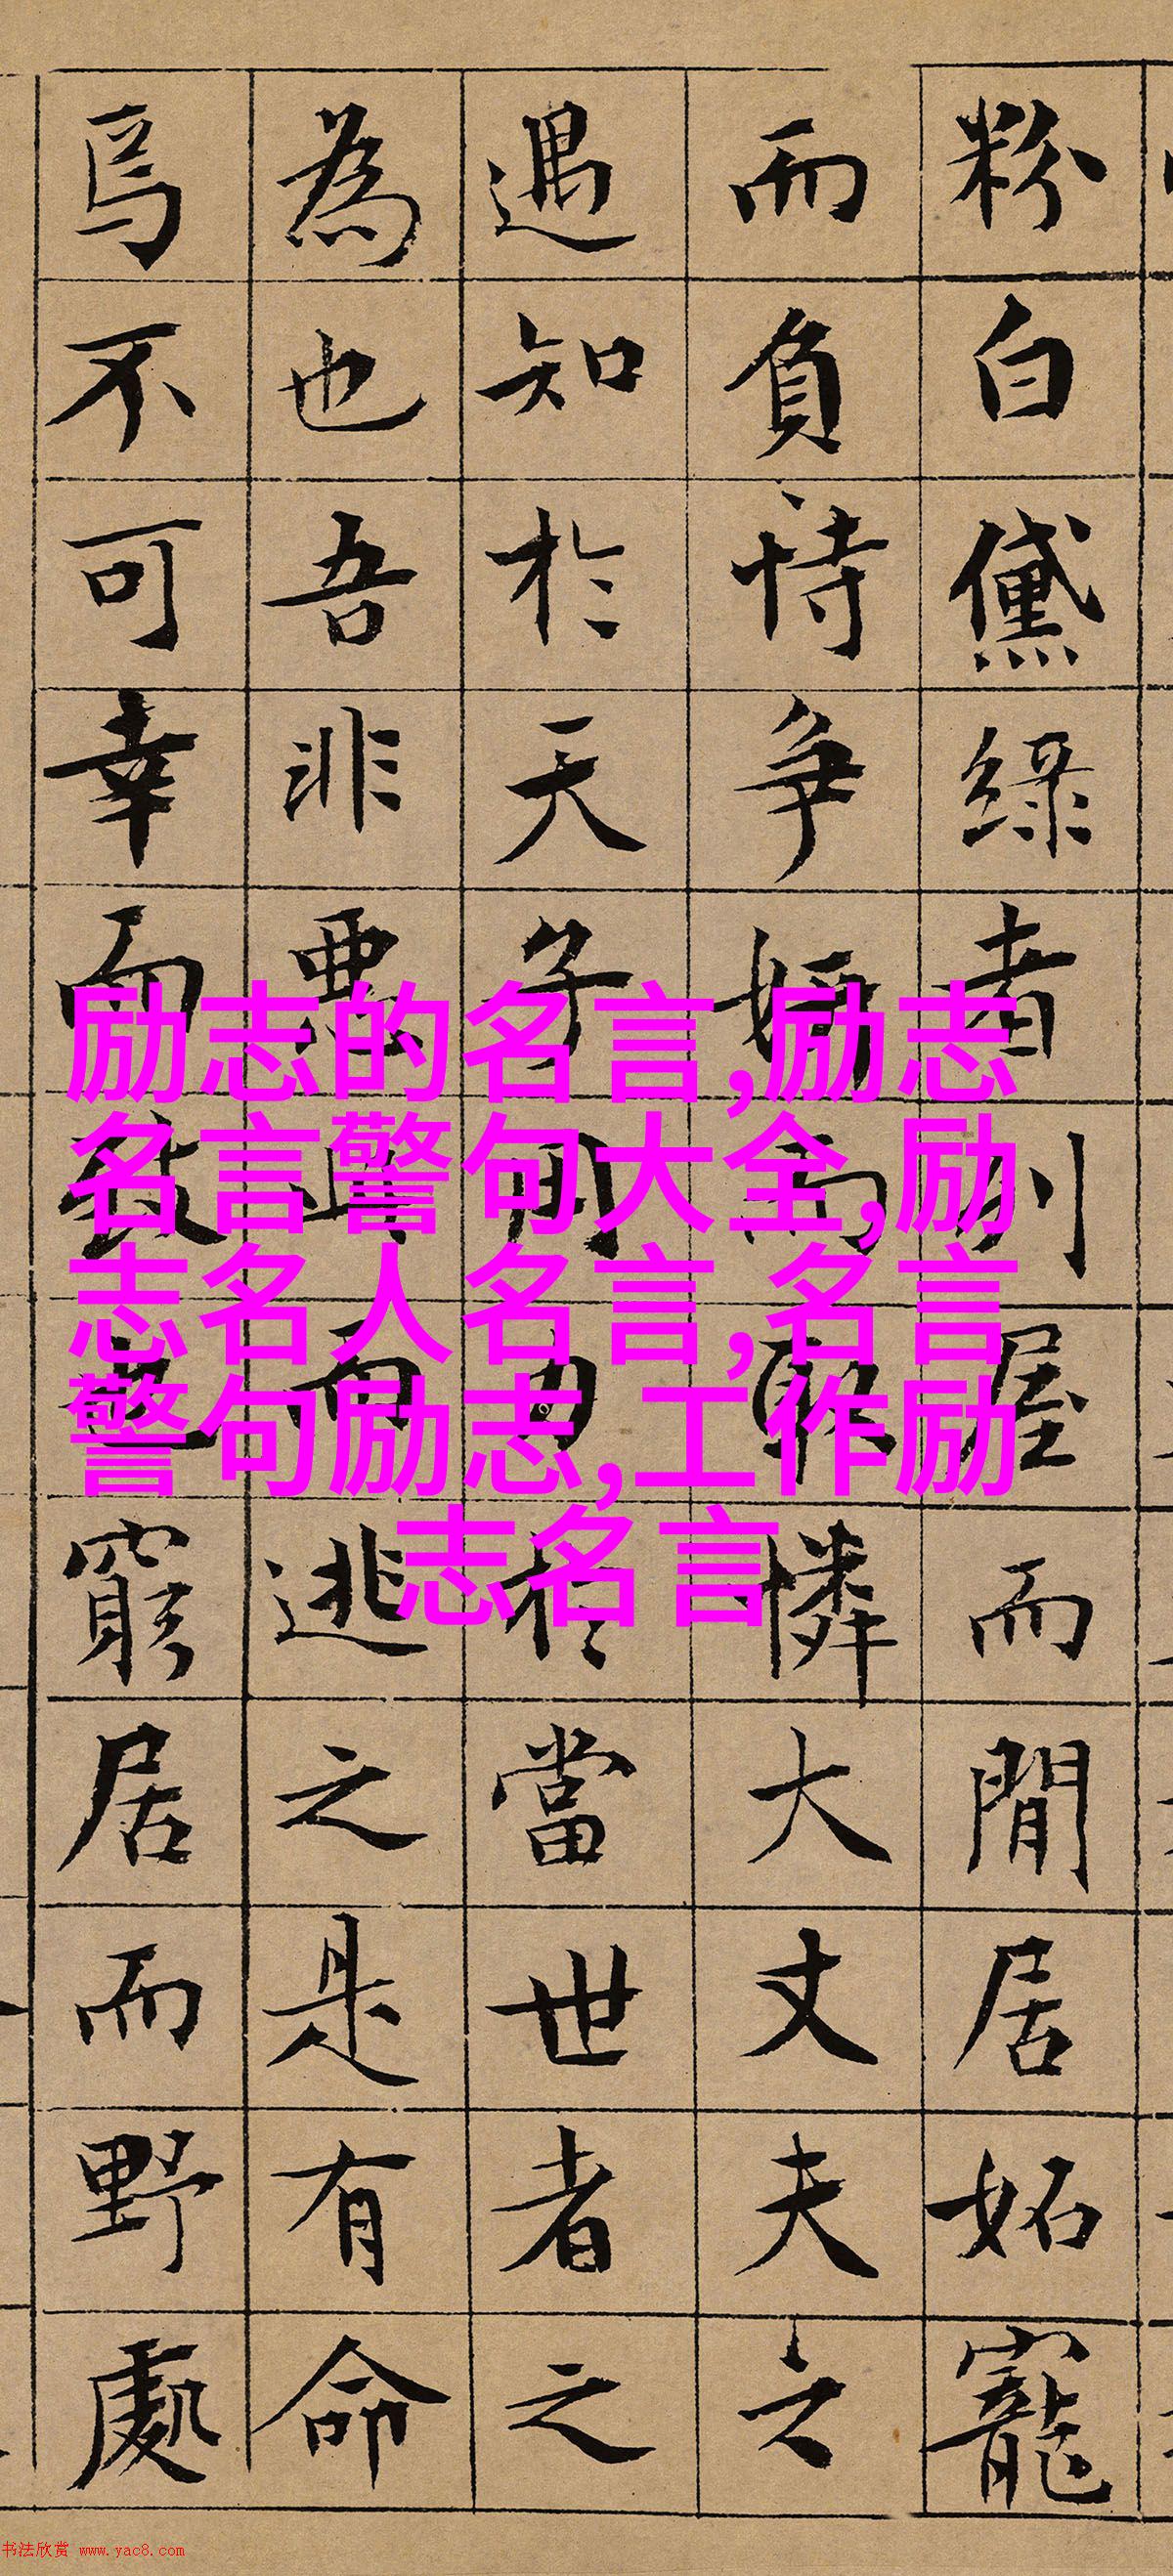 粉白黛綠者列屋而閒居妬寵
而負恃爭妍而取憐大丈夫之
遇知於天子用力於當世者之
為也吾非惡此而逃之是有命
焉不可幸而致也窮居而野處
励志的名言,励志
名言警句大全,励
志名人名言,名言
警句励志,工作励
志名言
书法欣赏 www.yac8.com